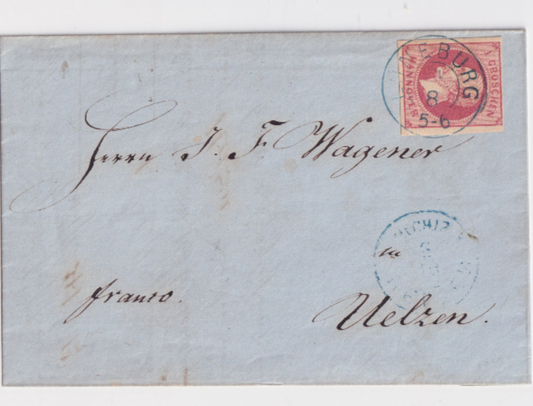 LÜNEBURG
8
5-6
HANNOVER
1 GROSCHEN
Herrn J. F. Wagener
in
franco.
Uelzen.